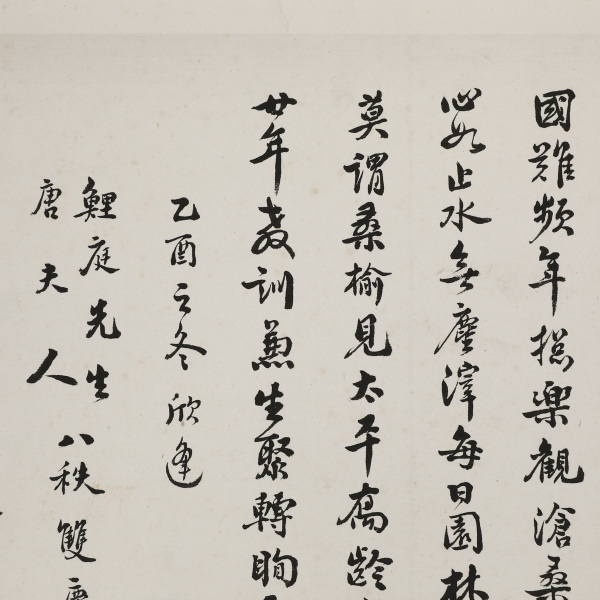 國難頻年總樂觀滄桑
心如止水無塵滓每日園林
莫謂桑榆見太平高齡
廿年教訓兼生聚轉眴
乙酉之冬欣逢
鯉庭先生
唐夫人八秩雙慶